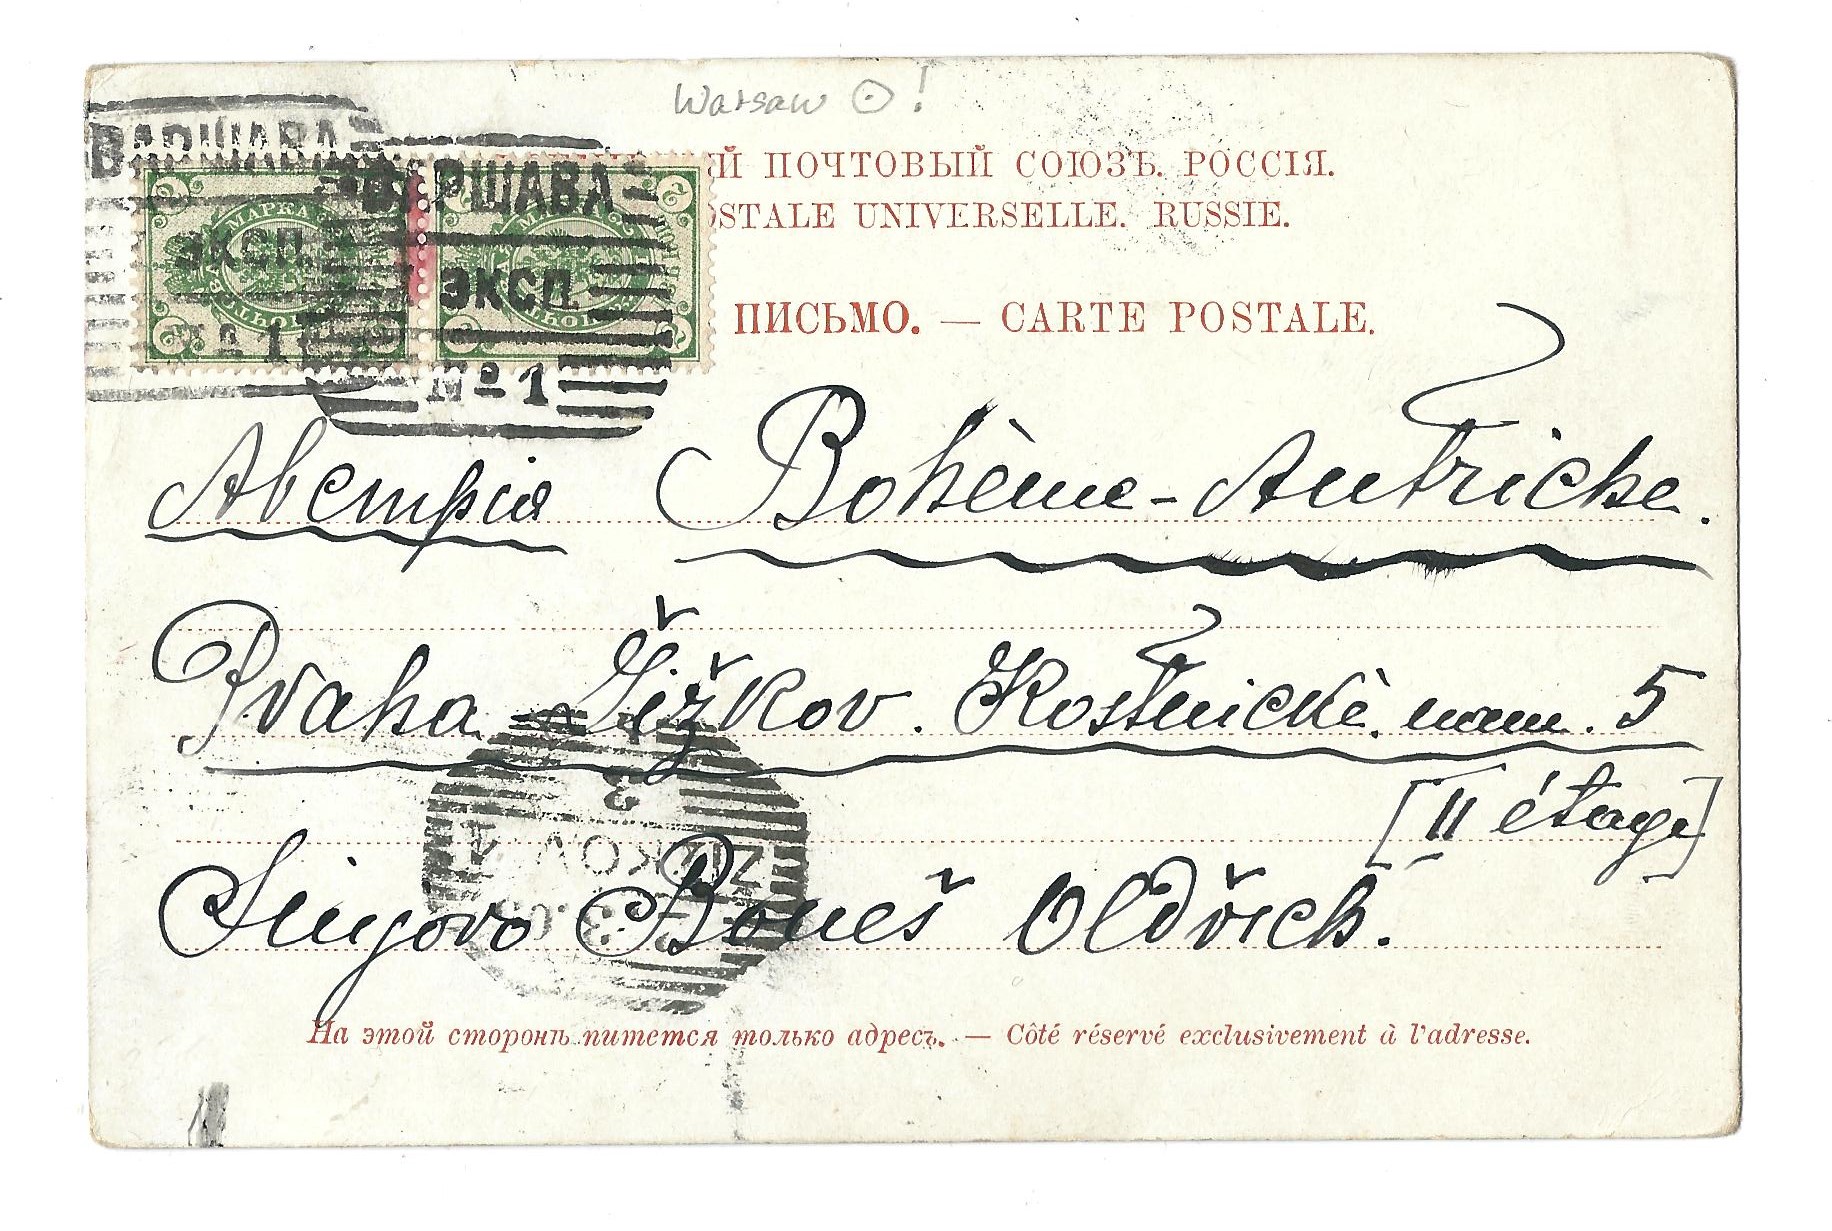 Warsaw !
ВАРШАВА
ЭКСП.
№ 1
ВАРШАВА
ЭКСП.
№ 1
МАРКА
МАРКА
2
2
Й ПОЧТОВЫЙ СОЮЗЪ. РОССІЯ.
OSTALE UNIVERSELLE. RUSSIE.
ПИСЬМО. — CARTE POSTALE.
Австрія Bohème-Autriche.
Praha Žižkov. Kostnické. nam. 5
[II étage]
3
ŽIŽKOV 1
Boneš Oldřich.
На этой сторонѣ пишется только адресъ. — Côté réservé exclusivement à l'adresse.